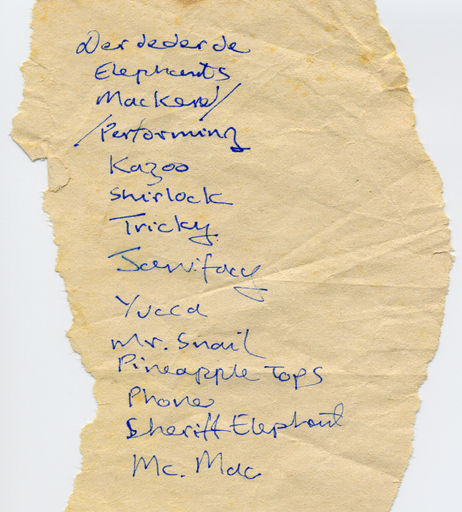 Derdederde
Elephants
Mackerel/
/Performing
Kazoo
Shirlock
Tricky
Yucca
Mr. Snail
Pineapple Tops
Phone
Sheriff Elephant
Mc. Mac